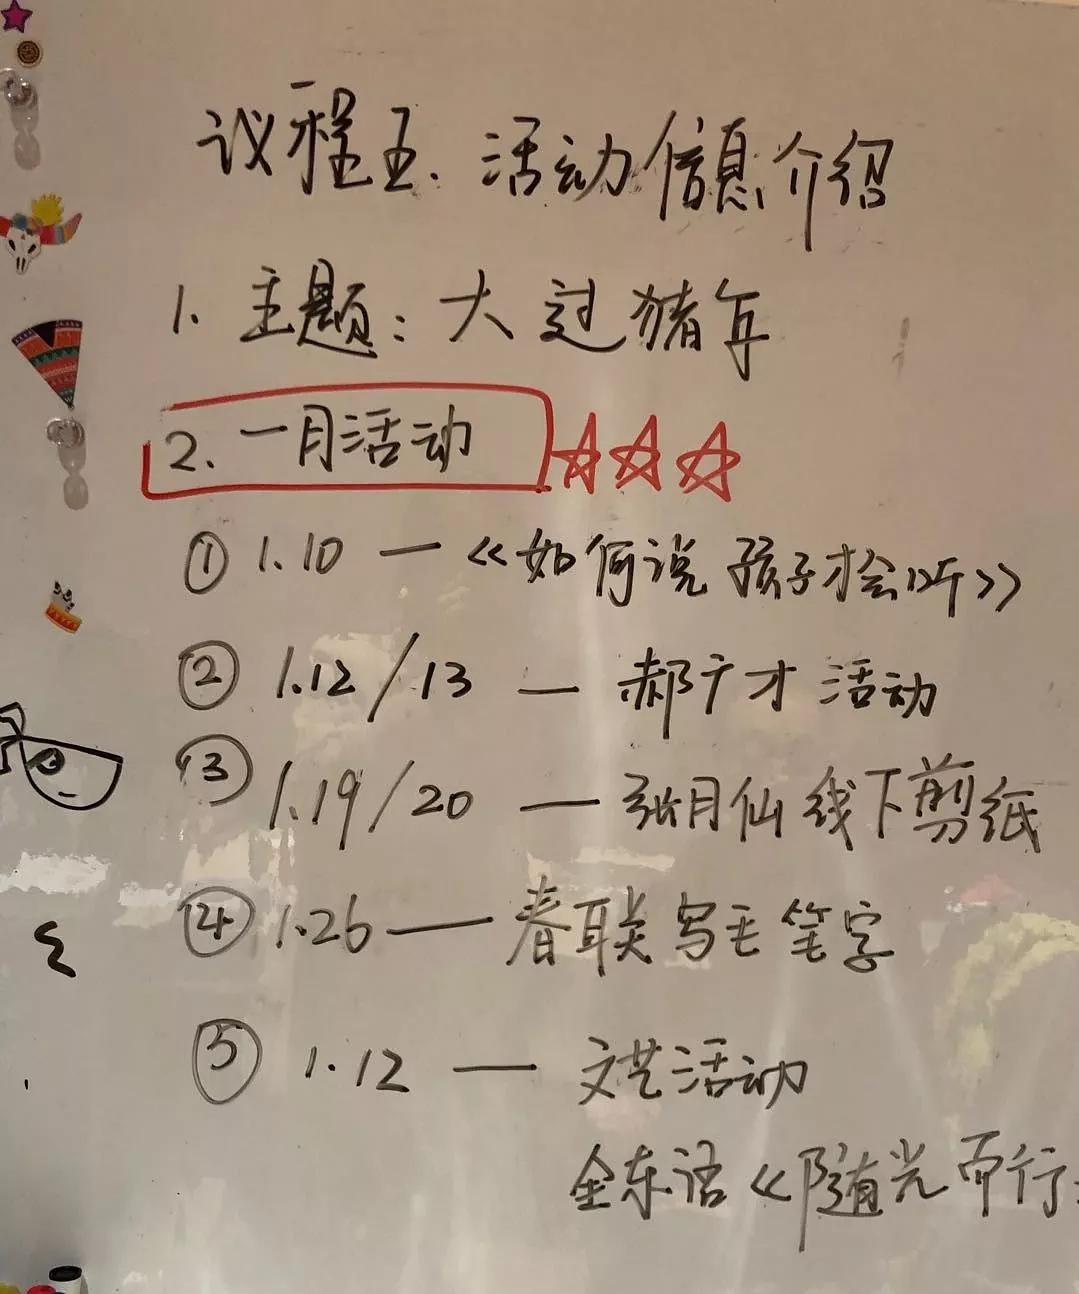 议程五、活动信息介绍
1. 主题：大过猪年
2. 一月活动
① 1.10 — 《如何说孩子才会听》
② 1.12/13 — 郝广才活动
③ 1.19/20 — 张月仙线下剪纸
④ 1.26 — 春联写毛笔字
⑤ 1.12 — 文艺活动
金东语《随光而行